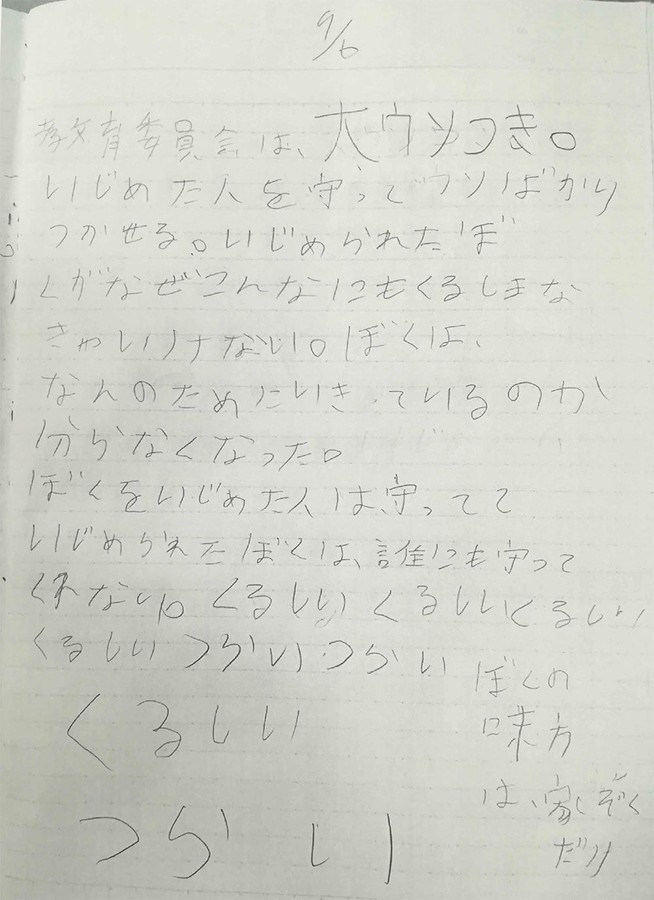 9/6
教育委員会は、大ウソつき。
いじめた人を守ってウソばかり
つかせる。いじめられたぼ
くがなぜこんなにもくるしまな
きゃいけない。ぼくは、
なんのためにいきているのか
分らなくなった。
ぼくをいじめた人は、守ってて
いじめられたぼくは、誰にも守って
くれない。くるしい くるしい くるしい
くるしい つらい つらい
くるしい
つらい
ぼくの
味方
は、家ぞく
だけ